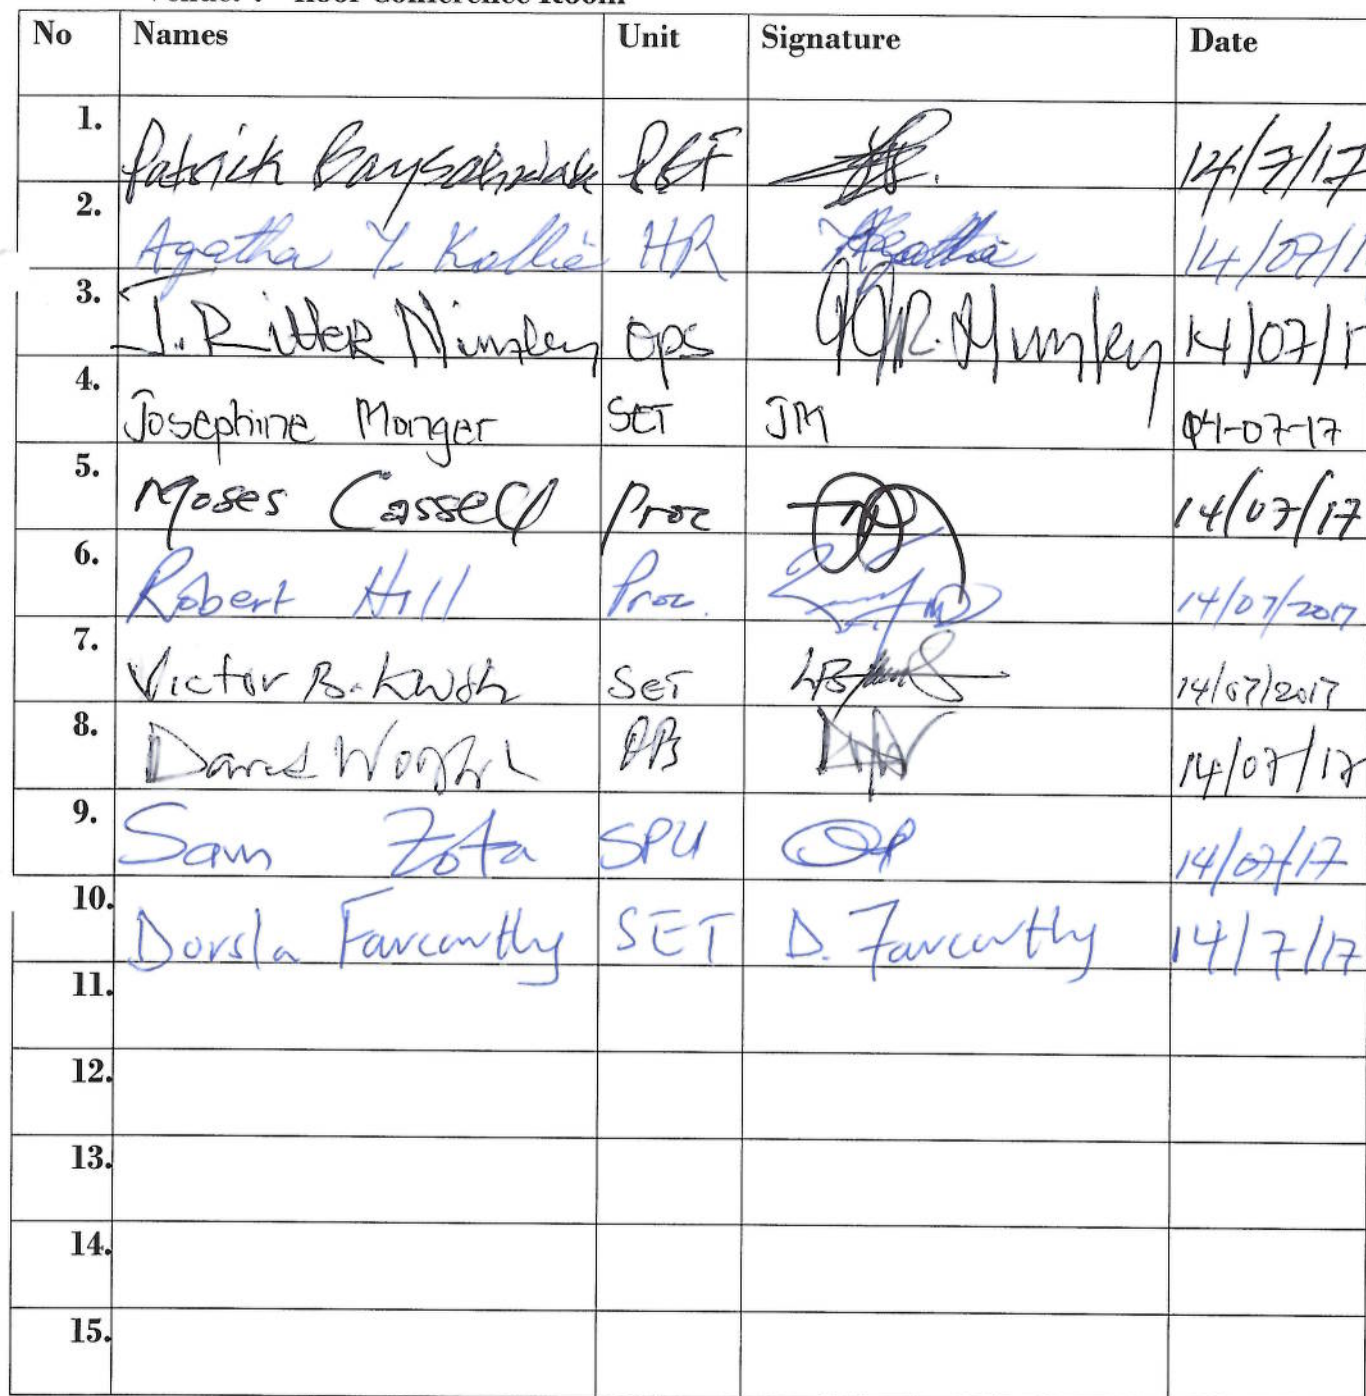 Conference Room
No Names Unit Signature Date
1. Patrick 14/7/17
2. Agatha Y. Kollie HR 14/07/1
3. J. Ritter Nimley Ops 14/07/1
4. Josephine Monger SET JM 04-07-17
5. Moses Cassell Proc 14/07/17
6. Robert Hill Proc. 14/07/2017
7. Victor B. Kwoh SET 14/07/2017
8. David 14/07/17
9. Sam Zota SPU 14/07/17
10. Dorsla Farcarthy SET D. Farcarthy 14/7/17
11.
12.
13.
14.
15.